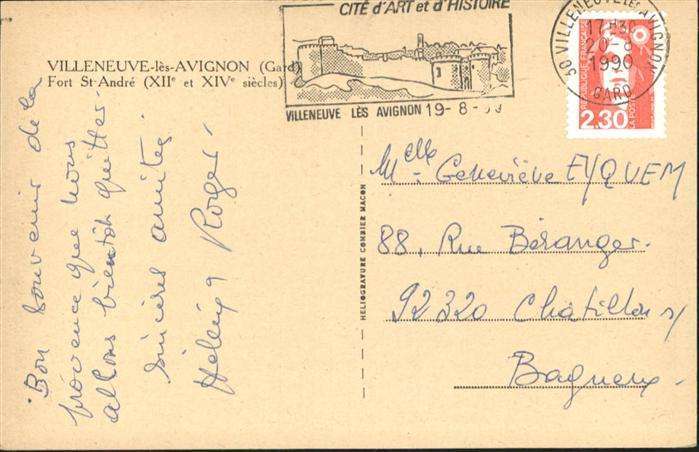 CITÉ d'ART et d'HISTOIRE
VILLENEUVE LÈS AVIGNON 19-8-
30 VILLENEUVE LES AVIGNON
17H30
20-8
1990
GARD
REPUBLIQUE FRANÇAISE
LA POSTE
2,30
VILLENEUVE-lès-AVIGNON (Gard)
Fort St-André (XIIe et XIVe siècles)
Bon souvenir de la
provence que nous
allons bientôt quitter
sincères amitiés.
Roger.
HELIOGRAVURE COMBIER MACON
Melle Geneviève EYQUEM
88, Rue Béranger.
92320 Châtillon s/
Bagneux.